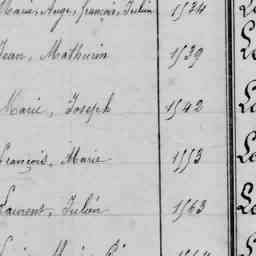 Marie, Ange, François, Julien 1534
Jean, Mathurin 1539
Marie, Joseph 1542
François, Marie 1553
Laurent, Julien 1563